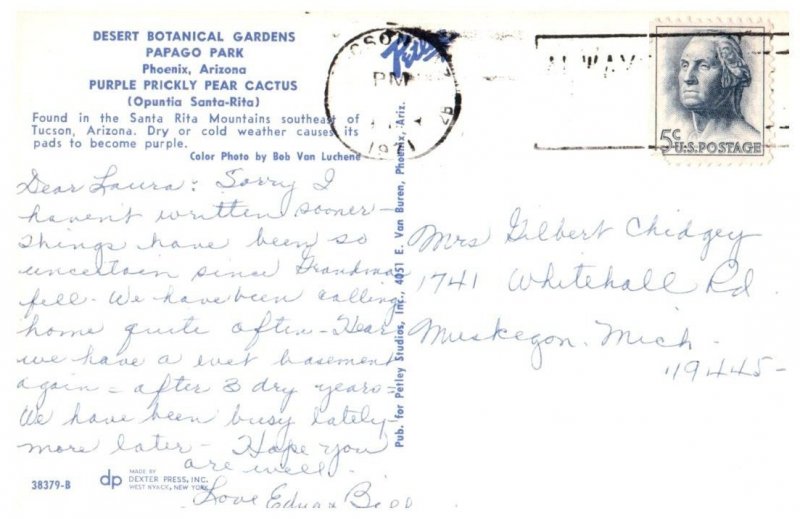 DESERT BOTANICAL GARDENS
PAPAGO PARK
Phoenix, Arizona
PURPLE PRICKLY PEAR CACTUS
(Opuntia Santa-Rita)
Found in the Santa Rita Mountains southeast of
Tucson, Arizona. Dry or cold weather causes its
pads to become purple.
Color Photo by Bob Van Luchene
Dear Laura: Sorry I
haven't written sooner -
Things have been so
uncertain since Grandma
fell. We have been calling
home quite often - Hear
we have a wet basement
again - after 3 dry years -
We have been busy lately -
more later - Hope you
are well.
Love Edna & Bill
38379-B
dp
MADE BY
DEXTER PRESS, INC.
WEST NYACK, NEW YORK
Pub. for Petley Studios, Inc., 4051 E. Van Buren, Phoenix, Ariz.
Petley
PM
1971
5c
U.S. POSTAGE
Mrs Gilbert Chidgey
1741 Whitehall Rd.
Muskegon, Mich.
49445-